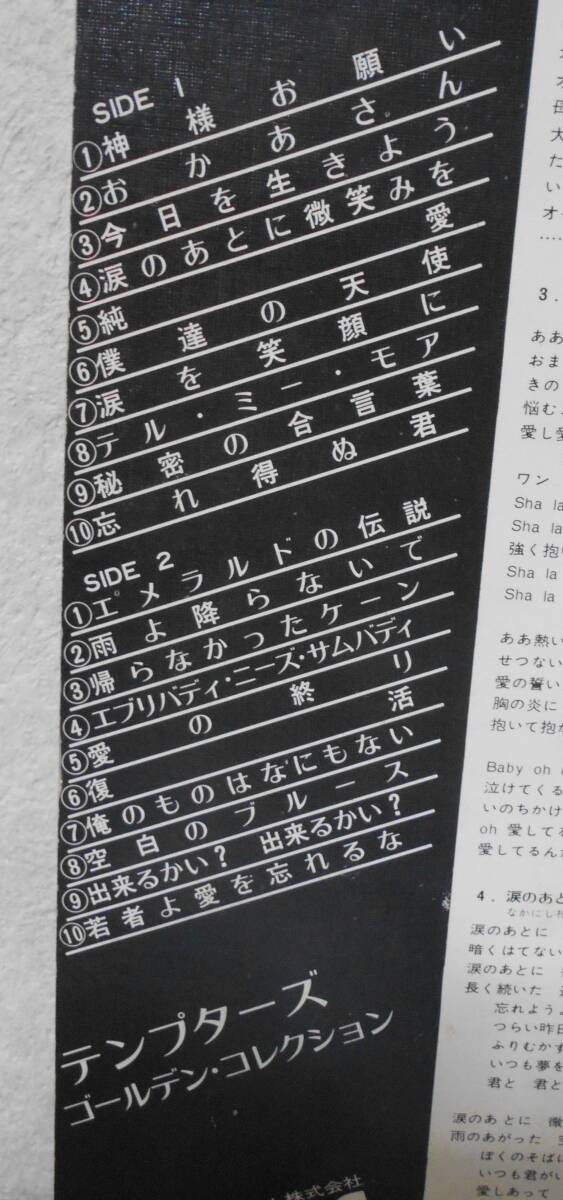 SIDE 1
①神様お願い
②おかあさん
③今日を生きよう
④涙のあとに微笑みを
⑤純愛
⑥僕達の天使
⑦涙を笑顔に
⑧テル・ミー・モア
⑨秘密の合言葉
⑩忘れ得ぬ君
SIDE 2
①エメラルドの伝説
②雨よ降らないで
③帰らなかったケーン
④エブリバディ・ニーズ・サムバディ
⑤愛の終り
⑥復活
⑦俺のものはなにもない
⑧空白のブルース
⑨出来るかい? 出来るかい?
⑩若者よ愛を忘れるな
テンプターズ
ゴールデン・コレクション
株式会社
母
大
た
い
オ
……
3.
ああ
おま
きの
悩む
愛し愛
ワン
Sha la
Sha la
強く抱
Sha la
Sha la
ああ熱い
せつない
愛の誓い
胸の炎に
抱いて抱か
Baby oh
泣けてくる
いのちかけ
oh 愛して
愛してるん
4. 涙のあと
なかにし
涙のあとに
暗くはてない
涙のあとに
長く続いた
忘れよう
つらい昨日
ふりむかず
いつも夢を
君と 君と
涙のあとに 微
雨のあがった
ぼくのそばに
いつも君がい
愛しあって